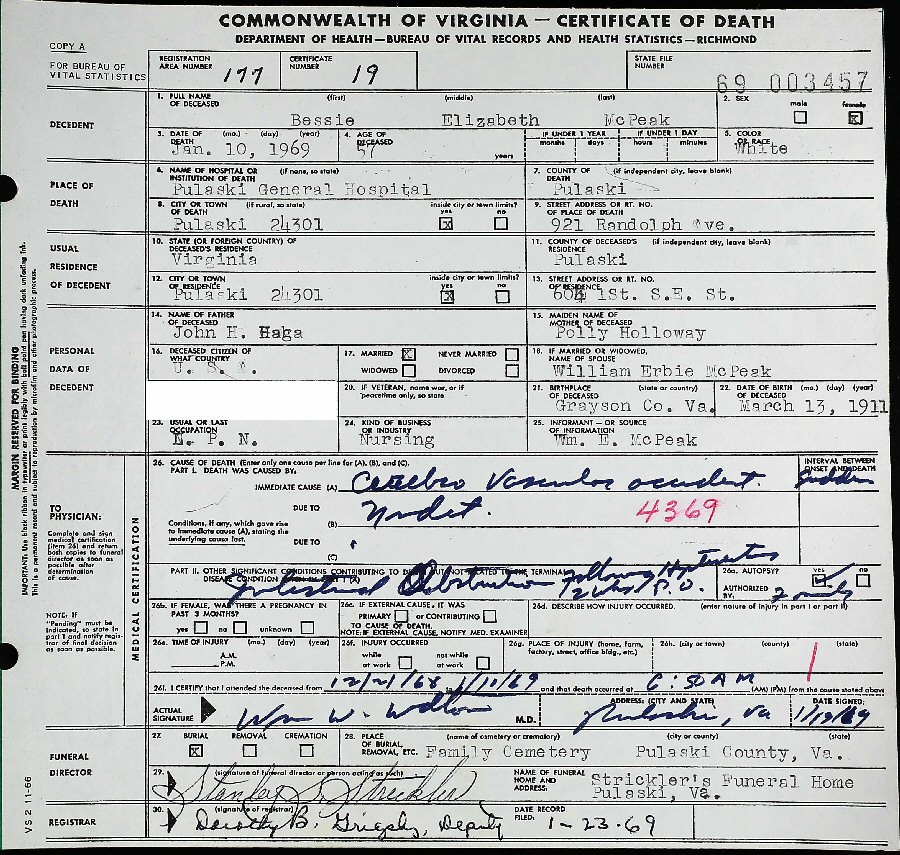 COMMONWEALTH OF VIRGINIA — CERTIFICATE OF DEATH
DEPARTMENT OF HEALTH—BUREAU OF VITAL RECORDS AND HEALTH STATISTICS—RICHMOND
COPY A
FOR BUREAU OF VITAL STATISTICS
REGISTRATION AREA NUMBER 177
CERTIFICATE NUMBER 19
STATE FILE NUMBER 69 003457
DECEDENT
1. FULL NAME OF DECEASED (first) (middle) (last)
Bessie Elizabeth McPeak
2. SEX male female ☒
3. DATE OF DEATH (mo.) (day) (year)
Jan. 10, 1969
4. AGE OF DECEASED
57 years
IF UNDER 1 YEAR months days
IF UNDER 1 DAY hours minutes
5. COLOR OR RACE
White
PLACE OF DEATH
6. NAME OF HOSPITAL OR INSTITUTION OF DEATH (if none, so state)
Pulaski General Hospital
7. COUNTY OF DEATH (if independent city, leave blank)
Pulaski
8. CITY OR TOWN OF DEATH (if rural, so state) inside city or town limits? yes ☒ no
Pulaski 24301
9. STREET ADDRESS OR RT. NO. OF PLACE OF DEATH
921 Randolph Ave.
USUAL RESIDENCE OF DECEDENT
10. STATE (OR FOREIGN COUNTRY) OF DECEASED'S RESIDENCE
Virginia
11. COUNTY OF DECEASED'S RESIDENCE (if independent city, leave blank)
Pulaski
12. CITY OR TOWN OF RESIDENCE inside city or town limits? yes ☒ no
Pulaski 24301
13. STREET ADDRESS OR RT. NO. OF RESIDENCE
604 1St. S.E. St.
PERSONAL DATA OF DECEDENT
14. NAME OF FATHER OF DECEASED
John H. Haga
15. MAIDEN NAME OF MOTHER OF DECEASED
Polly Holloway
16. DECEASED CITIZEN OF WHAT COUNTRY
U. S.
17. MARRIED ☒ NEVER MARRIED
WIDOWED DIVORCED
18. IF MARRIED OR WIDOWED, NAME OF SPOUSE
William Erbie McPeak
20. IF VETERAN, name war, or if peacetime only, so state
21. BIRTHPLACE OF DECEASED (state or country)
Grayson Co. Va.
22. DATE OF BIRTH OF DECEASED (mo.) (day) (year)
March 13, 1911
23. USUAL OR LAST OCCUPATION
P. N.
24. KIND OF BUSINESS OR INDUSTRY
Nursing
25. INFORMANT – OR SOURCE OF INFORMATION
Wm. E. McPeak
MARGIN RESERVED FOR BINDING
IMPORTANT: Use black ribbon in typewriter or print legibly with ball point pen having dark unfading ink.
This is a permanent record and subject to reproduction by microfilm and other photographic process.
TO PHYSICIAN:
Complete and sign medical certification (item 26) and return both copies to funeral director as soon as possible after determination of cause.
NOTE: IF "Pending" must be indicated, so state in part I and notify registrar of final decision as soon as possible.
MEDICAL CERTIFICATION
26. CAUSE OF DEATH (Enter only one cause per line for (A), (B), and (C).
PART I. DEATH WAS CAUSED BY:
INTERVAL BETWEEN ONSET AND DEATH
IMMEDIATE CAUSE (A) Cerebro Vascular accident. Sudden
DUE TO
4369
Conditions, if any, which gave rise to immediate cause (A), stating the underlying cause last. (B)
DUE TO
(C)
PART II. OTHER SIGNIFICANT CONDITIONS CONTRIBUTING TO DEATH BUT NOT RELATED TO THE TERMINAL DISEASE CONDITION GIVEN IN PART I (A)
Intestinal Obstruction Following Hysterectomy
2 wks P.O.
26a. AUTOPSY? yes ☑ no
AUTHORIZED BY: Family
26b. IF FEMALE, WAS THERE A PREGNANCY IN PAST 3 MONTHS?
yes no unknown
26c. IF EXTERNAL CAUSE, IT WAS
PRIMARY or CONTRIBUTING
TO CAUSE OF DEATH.
NOTE: IF EXTERNAL CAUSE, NOTIFY MED. EXAMINER
26d. DESCRIBE HOW INJURY OCCURRED. (enter nature of injury in part I or part II)
26e. TIME OF INJURY (mo.) (day) (year)
A.M.
P.M.
26f. INJURY OCCURRED
while at work not while at work
26g. PLACE OF INJURY (home, farm, factory, street, office bldg., etc.)
26h. (city or town) (county) (state)
26i. I CERTIFY that I attended the deceased from 12/21/68 1/11/69 and that death occurred at 6:50 AM (AM) (PM) from the cause stated above
ACTUAL SIGNATURE Wm W. Walton M.D.
ADDRESS: (CITY AND STATE) Pulaski, Va
DATE SIGNED: 1/13/69
FUNERAL DIRECTOR
27. BURIAL ☒ REMOVAL CREMATION
28. PLACE OF BURIAL, REMOVAL, ETC. (name of cemetery or crematory) (city or county) (state)
Family Cemetery Pulaski County, Va.
29. (signature of funeral director or person acting as such)
Strickler
NAME OF FUNERAL HOME AND ADDRESS:
Strickler's Funeral Home
Pulaski, Va.
REGISTRAR
30. (signature of registrar)
Dorothy B. Grigsby, Deputy
DATE RECORD FILED: 1-23-69
VS 2 11-66